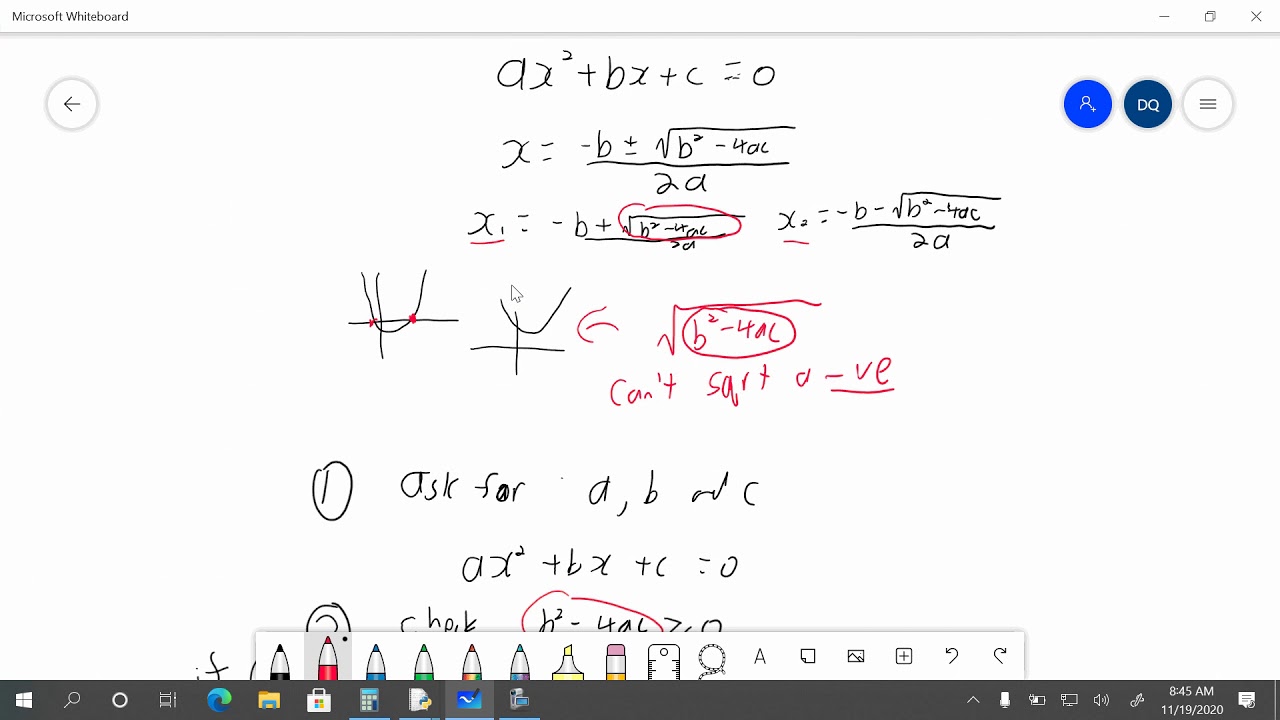 Microsoft Whiteboard
ax² + bx + c = 0
DQ
x = -b ± √b² - 4ac / 2a
x₁ = -b + √b² - 4ac / 2a x₂ = -b - √b² - 4ac / 2a
√b² - 4ac
can't sqrt a -ve
① ask for a, b and c
ax² + bx + c = 0
② check b² - 4ac > 0
if
A
8:45 AM
11/19/2020